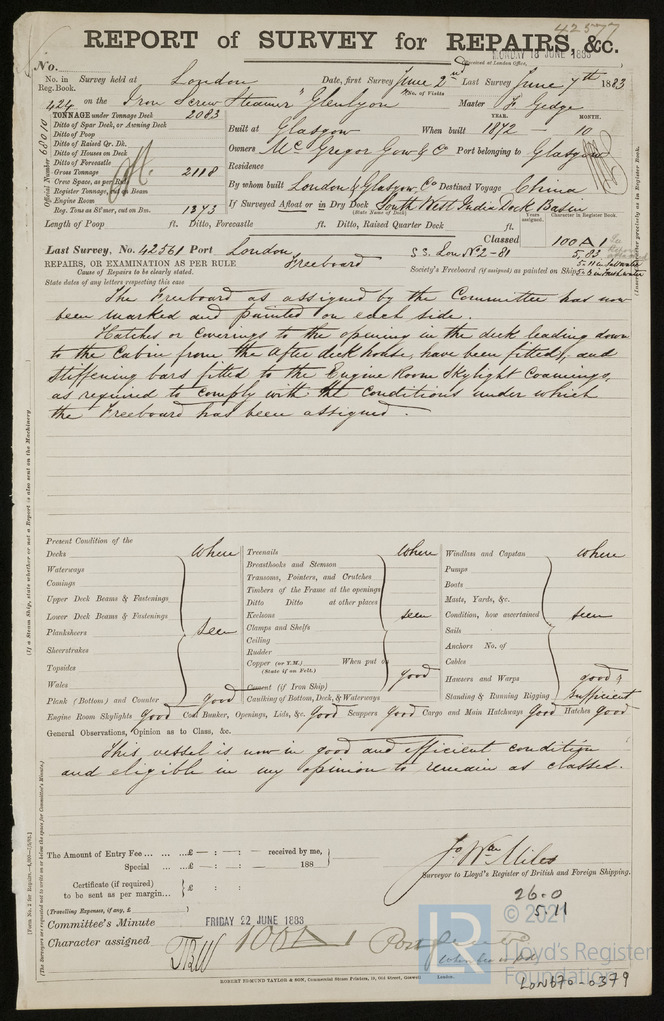 REPORT of SURVEY for REPAIRS, &c.
MONDAY 18 JUNE 1883
Received at London Office,
No.
No. in Reg. Book. Survey held at London Date, first Survey June 2nd Last Survey June 7th 1883
No. of Visits
424 on the Iron Screw Steamer "Glenlyon" Master F Gedge
TONNAGE under Tonnage Deck 2083
Ditto of Spar Deck, or Awning Deck
Ditto of Poop
Ditto of Raised Qr. Dk.
Ditto of Houses on Deck
Ditto of Forecastle
Gross Tonnage 2118
Crew Space, as per Rule
Register Tonnage, cut on Beam
Engine Room
Reg. Tons as St'mer, cut on Bm. 1373
Official Number 68010
YEAR. MONTH.
Built at Glasgow When built 1872 - 10
Owners McGregor Gow & Co Port belonging to Glasgow
Residence
By whom built London & Glasgow Co Destined Voyage China
If Surveyed Afloat or in Dry Dock South West India Dock Basin
(State Name of Dock)
Length of Poop ft. Ditto, Forecastle ft. Ditto, Raised Quarter Deck ft.
Years assigned. Character in Register Book.
Last Survey, No. 42561 Port London Classed 100 A 1
S.S. Lon No 2-81 5.83
REPAIRS, OR EXAMINATION AS PER RULE Freeboard
Cause of Repairs to be clearly stated.
Society's Freeboard (if assigned) as painted on Ship
State dates of any letters respecting this case
The Freeboard as assigned by the Committee has now
been marked and painted on each side.
Hatches or coverings to the opening in the deck leading down
to the cabin from the After deck house, have been fitted, and
stiffening bars fitted to the Engine Room Skylight Coamings,
as required to comply with the conditions under which
the Freeboard has been assigned.
(If a Steam Ship, state whether or not a Report is also sent on the Machinery.
(Insert Character precisely as in Register Book.
Present Condition of the
Decks Where
Waterways
Comings
Upper Deck Beams & Fastenings
Lower Deck Beams & Fastenings
Planksheers seen
Sheerstrakes
Topsides
Wales
Plank (Bottom) and Counter good
Treenails Where
Breasthooks and Stemson
Transoms, Pointers, and Crutches
Timbers of the Frame at the openings
Ditto Ditto at other places
Keelsons seen
Clamps and Shelfs
Ceiling
Rudder
Copper (or Y.M.) When put on
(State if on Felt.) good
Cement (if Iron Ship)
Caulking of Bottom, Deck, & Waterways
Windlass and Capstan Where
Pumps
Boats
Masts, Yards, &c.
Condition, how ascertained seen
Sails
Anchors No. of
Cables
Hawsers and Warps good &
Standing & Running Rigging Sufficient
Engine Room Skylights Good Coal Bunker, Openings, Lids, &c. Good Scuppers Good Cargo and Main Hatchways Good Hatches Good
General Observations, Opinion as to Class, &c.
This vessel is now in good and efficient condition
and eligible in my opinion to remain as classed.
The Amount of Entry Fee ... £ - : - : - received by me,
Special ... £ - : - : - 188
Certificate (if required) to be sent as per margin £ : :
(Travelling Expenses, if any, £
Jo Wm Miles
Surveyor to Lloyd's Register of British and Foreign Shipping.
26.0
5.11
Committee's Minute FRIDAY 22 JUNE 1883
Character assigned 100 A 1
ROBERT EDMUND TAYLOR & SON, Commercial Steam Printers, 19, Old Street, Goswell London.
LR
© 2021
Lloyd's Register
Foundation
LON670-0379